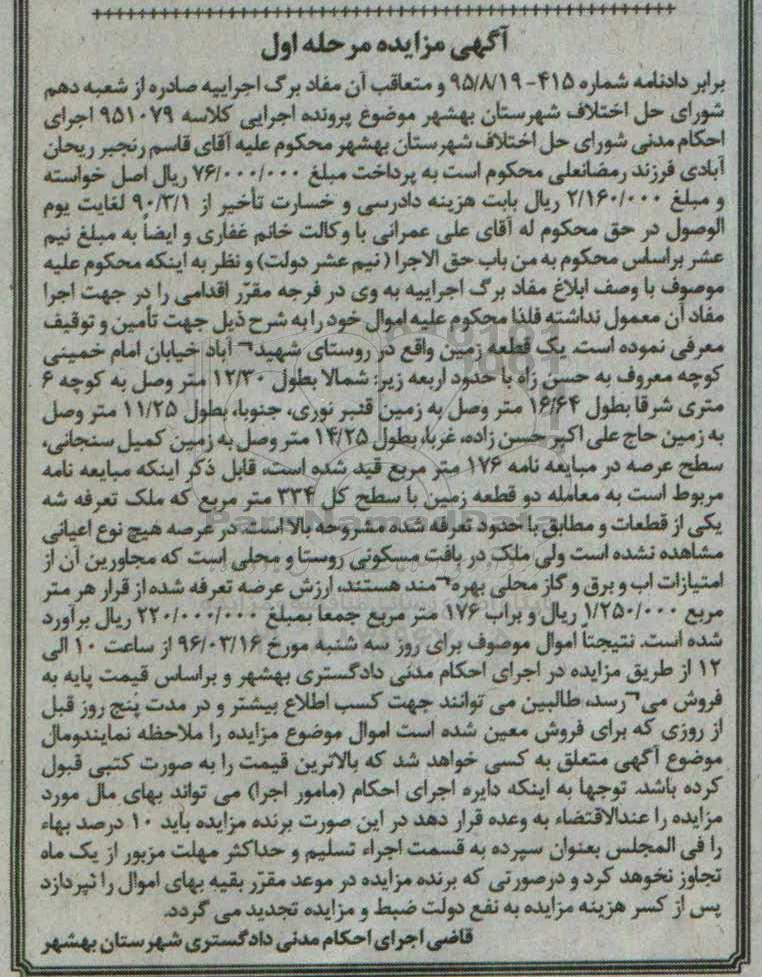 آگهی مزایده مرحله اول
برابر دادنامه شماره ۴۱۵-۹۵/۸/۱۹ و متعاقب آن مفاد برگ اجراییه صادره از شعبه دهم
شورای حل اختلاف شهرستان بهشهر موضوع پرونده اجرایی کلاسه ۹۵۱۰۷۹ اجرای
احکام مدنی شورای حل اختلاف شهرستان بهشهر محکوم علیه آقای قاسم رنجبر ریحان
آبادی فرزند رمضانعلی محکوم است به پرداخت مبلغ ۷۶/۰۰۰/۰۰۰ ریال اصل خواسته
و مبلغ ۲/۱۶۰/۰۰۰ ریال بابت هزینه دادرسی و خسارت تأخیر از ۹۰/۳/۱ لغایت یوم
الوصول در حق محکوم له آقای علی عمرانی با وکالت خانم غفاری و ایضاً به مبلغ نیم
عشر براساس محکوم به من باب حق الاجرا (نیم عشر دولت) و نظر به اینکه محکوم علیه
موصوف با وصف ابلاغ مفاد برگ اجراییه به وی در فرجه مقرّر اقدامی را در جهت اجرا
مفاد آن معمول نداشته فلذا محکوم علیه اموال خود را به شرح ذیل جهت تأمین و توقیف
معرفی نموده است. یک قطعه زمین واقع در روستای شهید¬ آباد خیابان امام خمینی
کوچه معروف به حسن زاه با حدود اربعه زیر: شمالا بطول ۱۲/۳۰ متر وصل به کوچه ۶
متری شرقا بطول ۱۶/۶۴ متر وصل به زمین قنبر نوری، جنوبا، بطول ۱۱/۲۵ متر وصل
به زمین حاج علی اکبر حسن زاده، غربا، بطول ۱۴/۲۵ متر وصل به زمین کمیل سنجانی،
سطح عرصه در مبایعه نامه ۱۷۶ متر مربع قید شده است، قابل ذکر اینکه مبایعه نامه
مربوط است به معامله دو قطعه زمین با سطح کل ۳۳۴ متر مربع که ملک تعرفه شه
یکی از قطعات و مطابق با حدود تعرفه شده مشروحه بالا است. در عرصه هیچ نوع اعیانی
مشاهده نشده است ولی ملک در بافت مسکونی روستا و محلی است که مجاورین آن از
امتیازات اب و برق و گاز محلی بهره¬مند هستند، ارزش عرصه تعرفه شده از قرار هر متر
مربع ۱/۲۵۰/۰۰۰ ریال و براب ۱۷۶ متر مربع جمعا بمبلغ ۲۲۰/۰۰۰/۰۰۰ ریال برآورد
شده است. نتیجتاً اموال موصوف برای روز سه شنبه مورخ ۹۶/۰۳/۱۶ از ساعت ۱۰ الی
۱۲ از طریق مزایده در اجرای احکام مدنی دادگستری بهشهر و براساس قیمت پایه به
فروش می¬رسد، طالبین می توانند جهت کسب اطلاع بیشتر و در مدت پنج روز قبل
از روزی که برای فروش معین شده است اموال موضوع مزایده را ملاحظه نمایندومال
موضوع آگهی متعلق به کسی خواهد شد که بالاترین قیمت را به صورت کتبی قبول
کرده باشد. توجها به اینکه دایره اجرای احکام (مامور اجرا) می تواند بهای مال مورد
مزایده را عندالاقتضاء به وعده قرار دهد در این صورت برنده مزایده باید ۱۰ درصد بهاء
را فی المجلس بعنوان سپرده به قسمت اجراء تسلیم و حداکثر مهلت مزبور از یک ماه
تجاوز نخوهد کرد و درصورتی که برنده مزایده در موعد مقرّر بقیه بهای اموال را نپردازد
پس از کسر هزینه مزایده به نفع دولت ضبط و مزایده تجدید می گردد.
قاضی اجرای احکام مدنی دادگستری شهرستان بهشهر